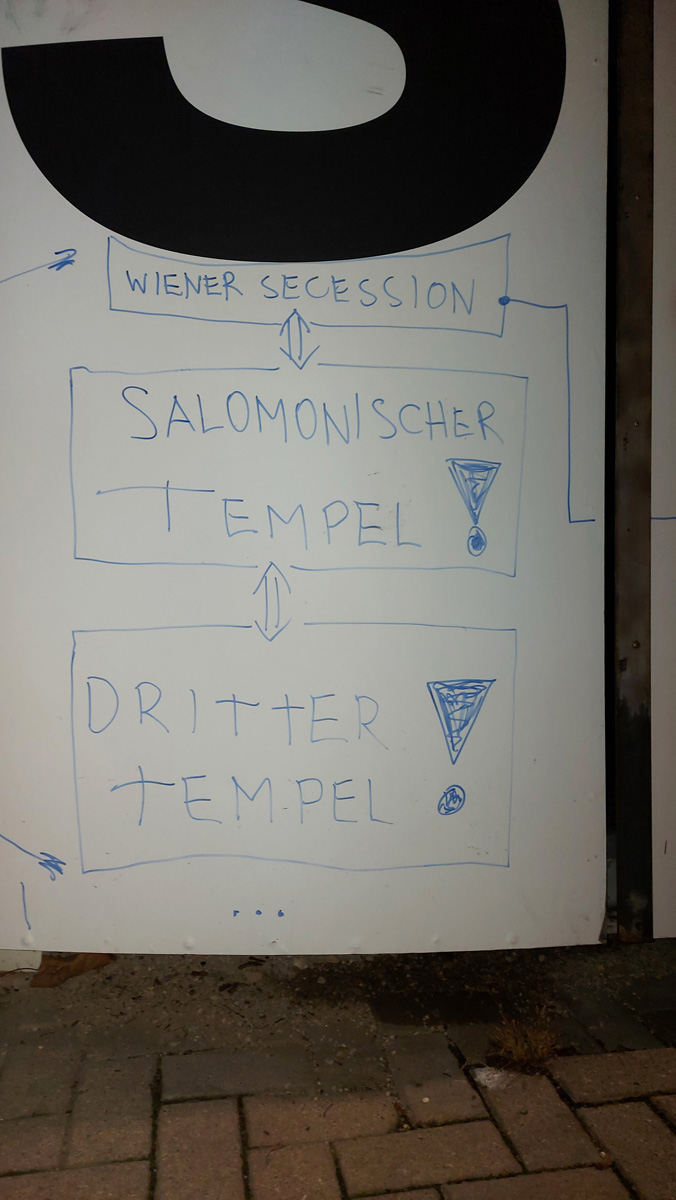 WIENER SECESSION
SALOMONISCHER
TEMPEL!
DRITTER
TEMPEL!
...